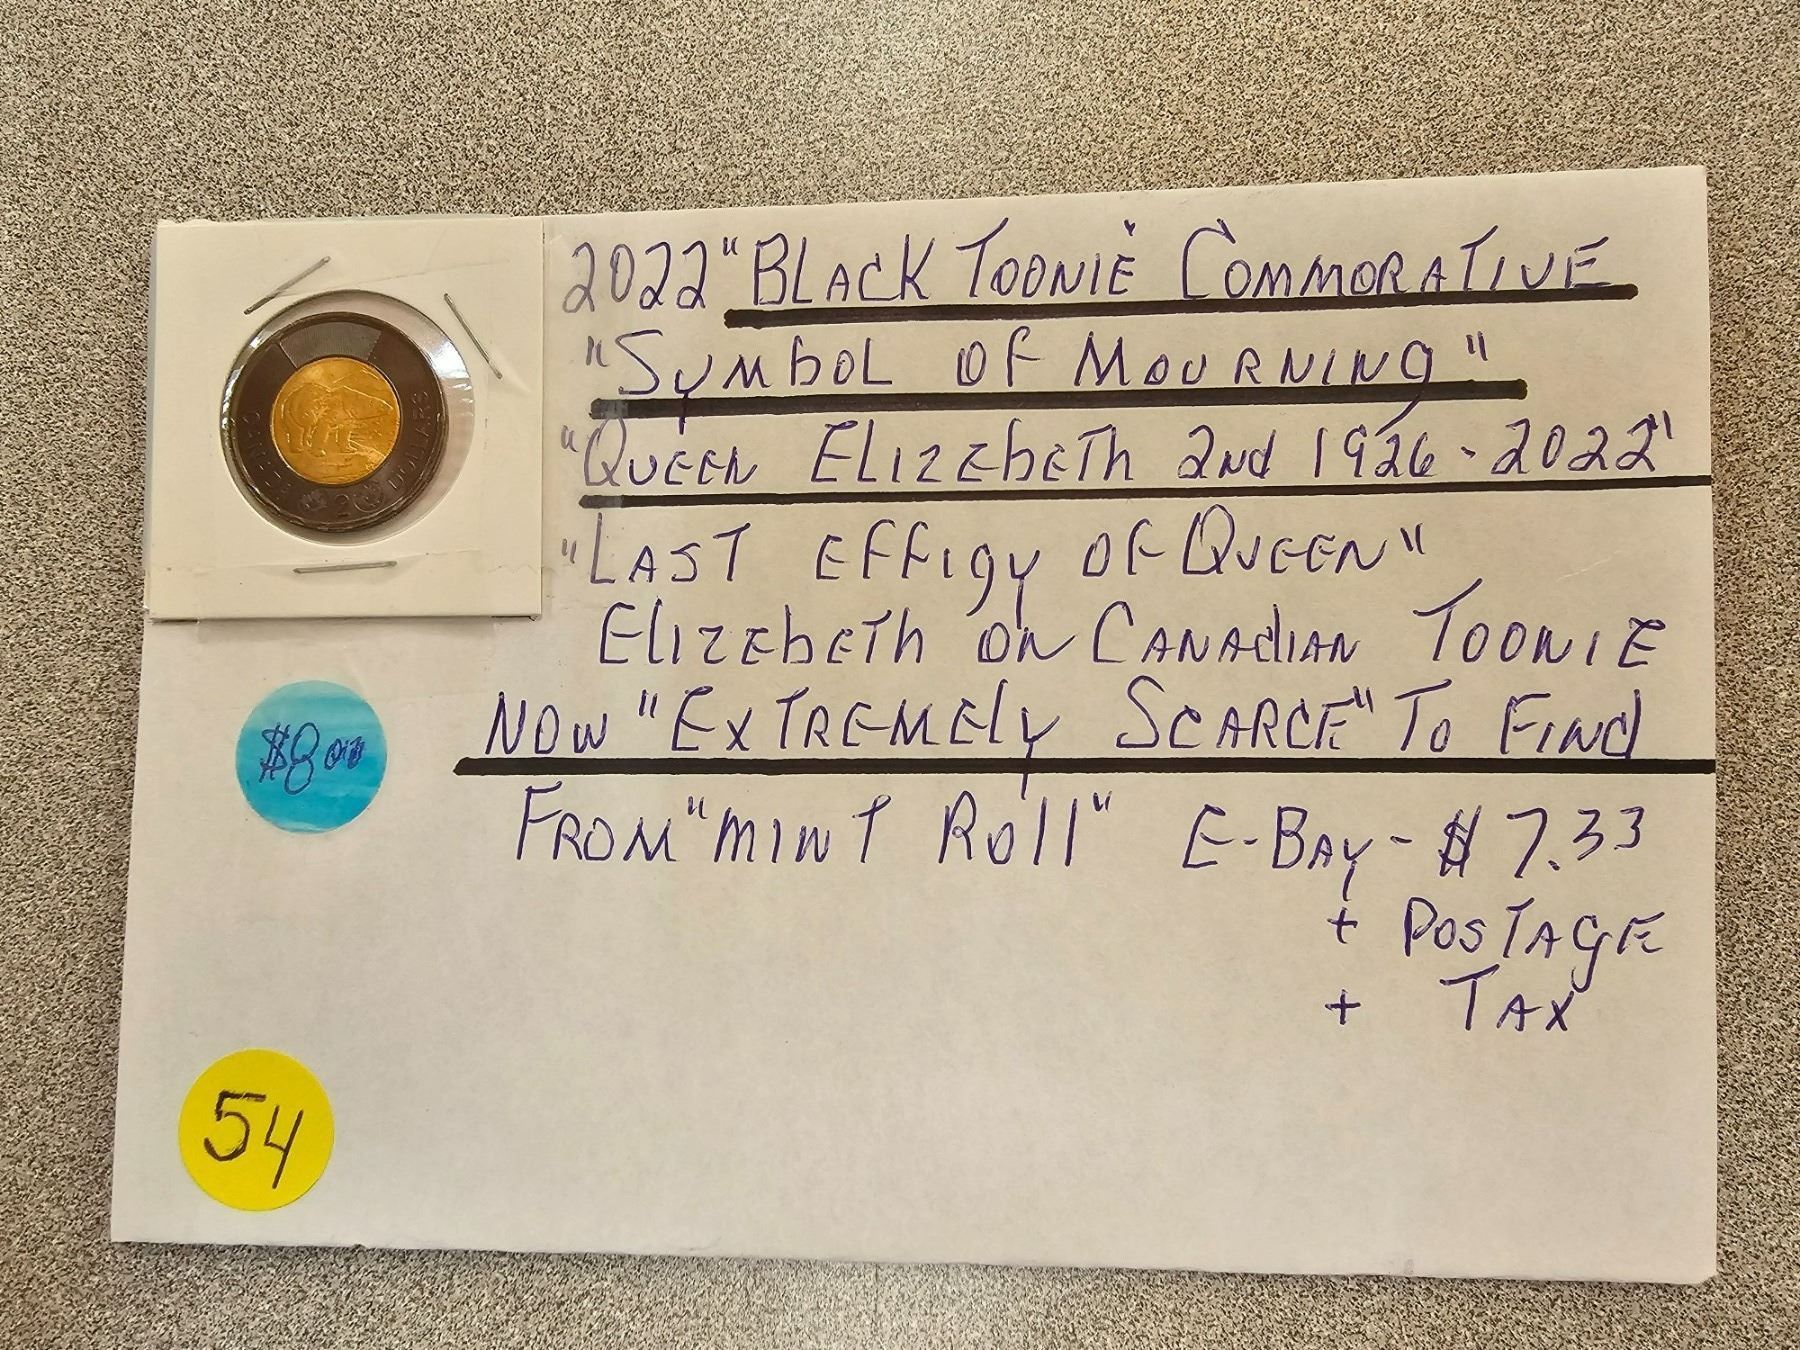 2022 "BLACK TOONIE" COMMORATIVE
"SYMBOL OF MOURNING"
"QUEEN ELIZEBETH 2ND 1926-2022"
"LAST EFFIGY OF QUEEN"
ELIZEBETH ON CANADIAN TOONIE
NOW "EXTREMELY SCARCE" TO FIND
FROM "MINT ROLL" E-BAY- $7.33
+ POSTAGE
+ TAX
$8.00
54
2 DOLLARS